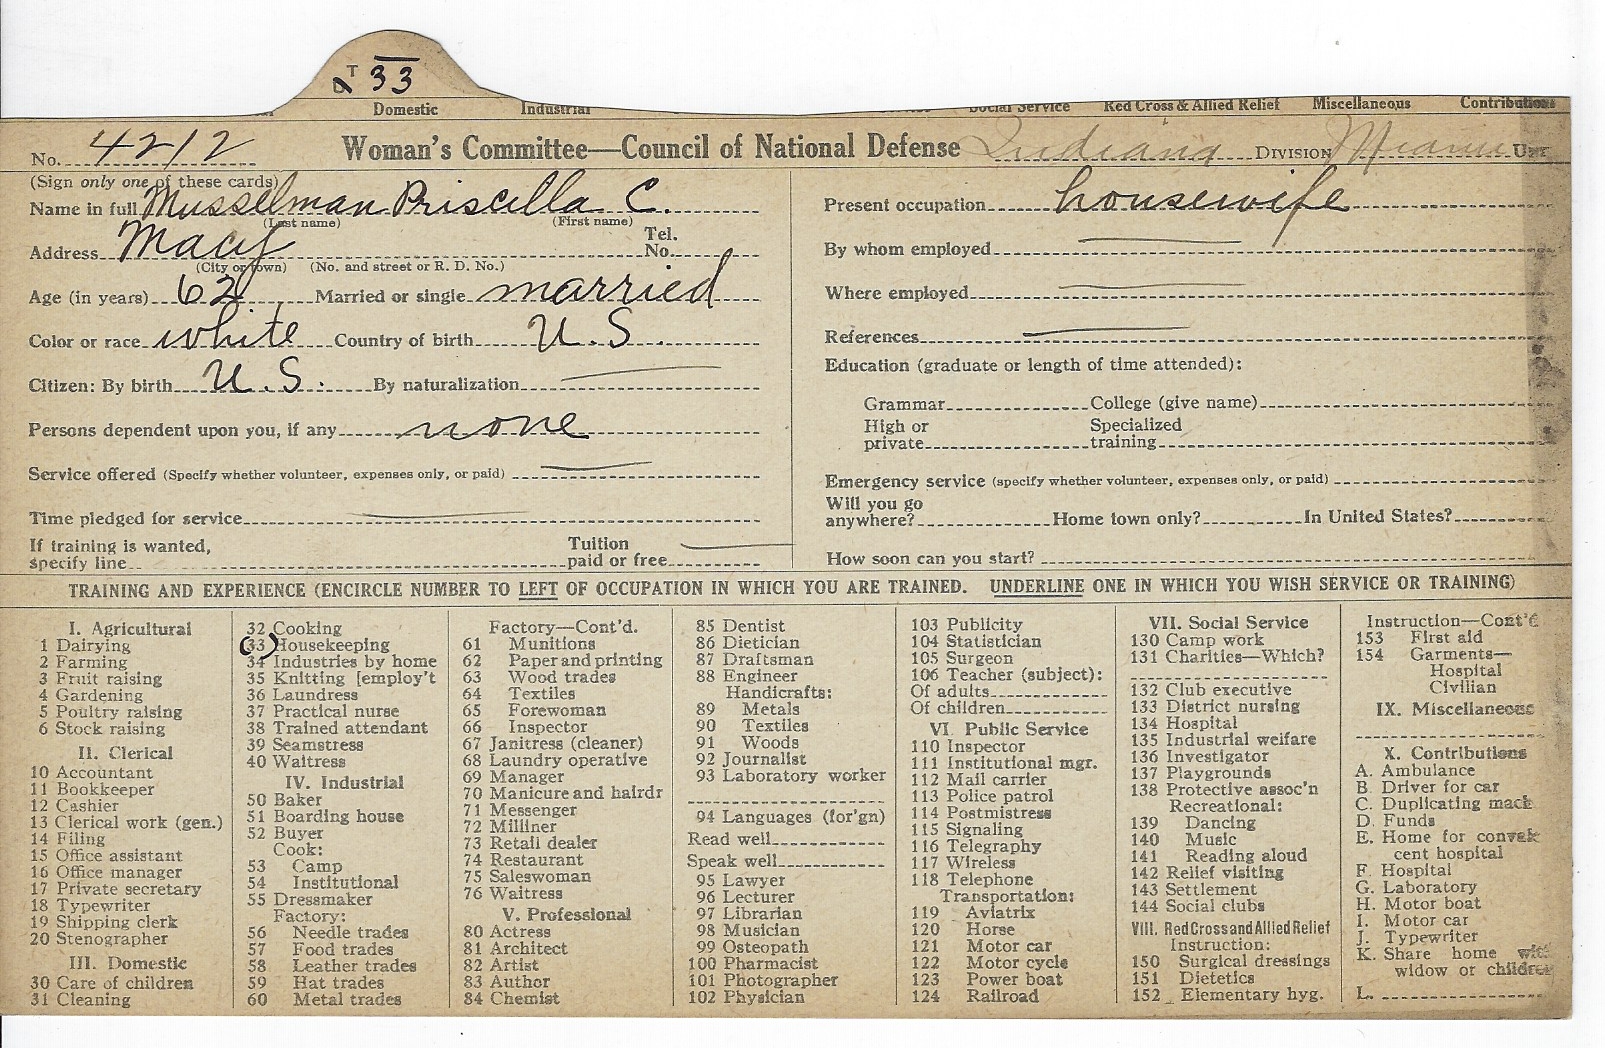 T 33
Domestic Industrial Social Service Red Cross & Allied Relief Miscellaneous Contributions
No. 4212 Woman's Committee—Council of National Defense Indiana DIVISION Miami UNIT
(Sign only one of these cards)
Name in full Musselman Priscilla C.
(Last name) (First name)
Address Macy Tel. No.
(City or town) (No. and street or R. D. No.)
Age (in years) 62 Married or single married
Color or race white Country of birth U.S.
Citizen: By birth U.S. By naturalization
Persons dependent upon you, if any none
Service offered (Specify whether volunteer, expenses only, or paid)
Time pledged for service
If training is wanted, specify line Tuition paid or free
Present occupation housewife
By whom employed
Where employed
References
Education (graduate or length of time attended):
Grammar College (give name)
High or private Specialized training
Emergency service (specify whether volunteer, expenses only, or paid)
Will you go anywhere? Home town only? In United States?
How soon can you start?
TRAINING AND EXPERIENCE (ENCIRCLE NUMBER TO LEFT OF OCCUPATION IN WHICH YOU ARE TRAINED. UNDERLINE ONE IN WHICH YOU WISH SERVICE OR TRAINING)
I. Agricultural
1 Dairying
2 Farming
3 Fruit raising
4 Gardening
5 Poultry raising
6 Stock raising
II. Clerical
10 Accountant
11 Bookkeeper
12 Cashier
13 Clerical work (gen.)
14 Filing
15 Office assistant
16 Office manager
17 Private secretary
18 Typewriter
19 Shipping clerk
20 Stenographer
III. Domestic
30 Care of children
31 Cleaning
32 Cooking
33 Housekeeping
34 Industries by home
35 Knitting [employ't
36 Laundress
37 Practical nurse
38 Trained attendant
39 Seamstress
40 Waitress
IV. Industrial
50 Baker
51 Boarding house
52 Buyer
Cook:
53 Camp
54 Institutional
55 Dressmaker
Factory:
56 Needle trades
57 Food trades
58 Leather trades
59 Hat trades
60 Metal trades
Factory—Cont'd.
61 Munitions
62 Paper and printing
63 Wood trades
64 Textiles
65 Forewoman
66 Inspector
67 Janitress (cleaner)
68 Laundry operative
69 Manager
70 Manicure and hairdr
71 Messenger
72 Milliner
73 Retail dealer
74 Restaurant
75 Saleswoman
76 Waitress
V. Professional
80 Actress
81 Architect
82 Artist
83 Author
84 Chemist
85 Dentist
86 Dietician
87 Draftsman
88 Engineer
Handicrafts:
89 Metals
90 Textiles
91 Woods
92 Journalist
93 Laboratory worker
94 Languages (for'gn)
Read well
Speak well
95 Lawyer
96 Lecturer
97 Librarian
98 Musician
99 Osteopath
100 Pharmacist
101 Photographer
102 Physician
103 Publicity
104 Statistician
105 Surgeon
106 Teacher (subject):
Of adults
Of children
VI. Public Service
110 Inspector
111 Institutional mgr.
112 Mail carrier
113 Police patrol
114 Postmistress
115 Signaling
116 Telegraphy
117 Wireless
118 Telephone
Transportation:
119 Aviatrix
120 Horse
121 Motor car
122 Motor cycle
123 Power boat
124 Railroad
VII. Social Service
130 Camp work
131 Charities—Which?
132 Club executive
133 District nursing
134 Hospital
135 Industrial welfare
136 Investigator
137 Playgrounds
138 Protective assoc'n
Recreational:
139 Dancing
140 Music
141 Reading aloud
142 Relief visiting
143 Settlement
144 Social clubs
VIII. Red Cross and Allied Relief
Instruction:
150 Surgical dressings
151 Dietetics
152 Elementary hyg.
Instruction—Cont'd
153 First aid
154 Garments—
Hospital
Civilian
IX. Miscellaneous
X. Contributions
A. Ambulance
B. Driver for car
C. Duplicating mach
D. Funds
E. Home for convales
cent hospital
F. Hospital
G. Laboratory
H. Motor boat
I. Motor car
J. Typewriter
K. Share home with
widow or children
L.